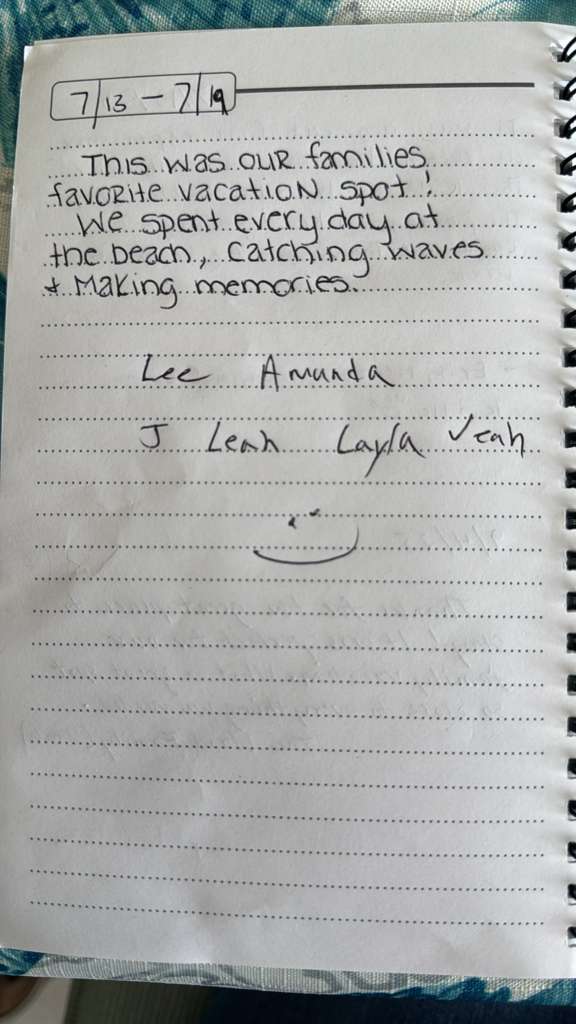 7/13 - 7/19
This was our families
favorite vacation spot!
We spent every day at
the beach, catching waves
+ making memories.
Lee Amanda
J Leah Layla Veah